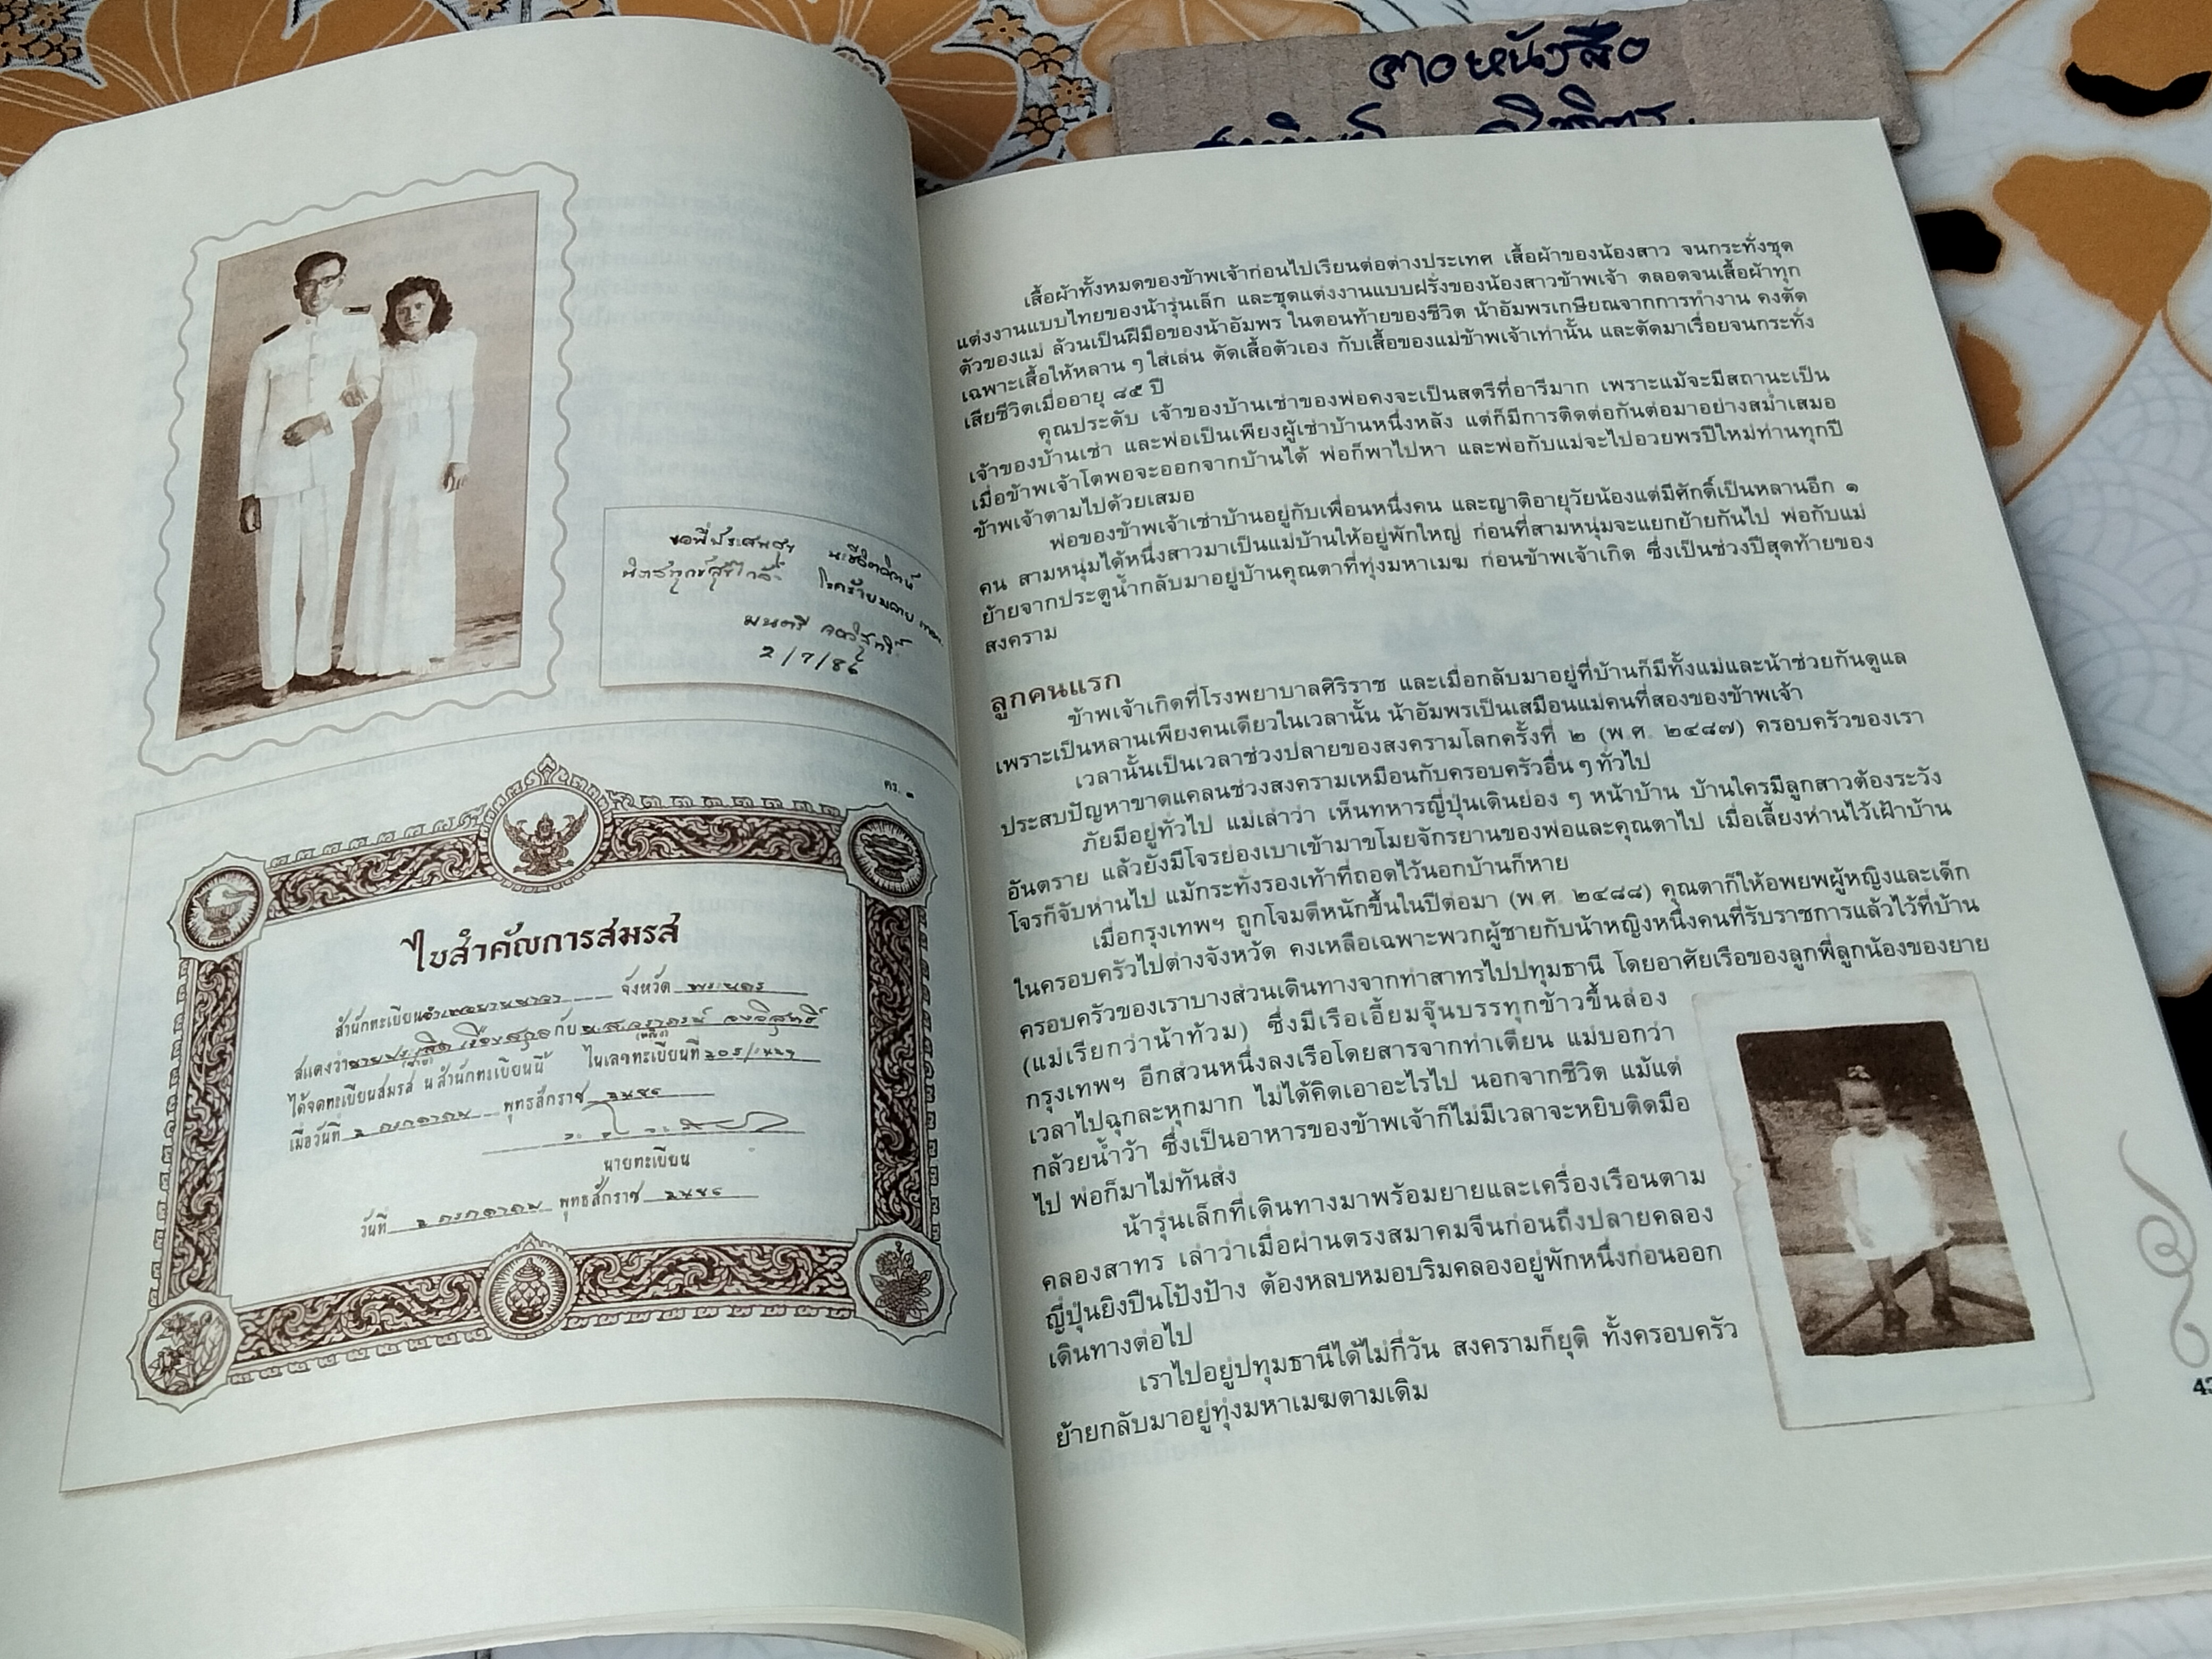 ตาอหนังสือ
ขอพี่ประเสริฐฯ
มนตรี
2/7/86
คร. ๑
ใบสำคัญการสมรส
สำนักทะเบียนอำเภอยานนาวา จังหวัด พระนคร
สแดงว่านายประเสริฐ กับ น.ส.วราภรณ์
ได้จดทะเบียนสมรส ณสำนักทะเบียนนี้ ในเลขทะเบียนที่
เมื่อวันที่ ๒ กรกฎาคม พุทธสักราช ๒๔๘๖
นายทะเบียน
วันที่ ๒ กรกฎาคม พุทธสักราช ๒๔๘๖
เสื้อผ้าทั้งหมดของข้าพเจ้าก่อนไปเรียนต่อต่างประเทศ เสื้อผ้าของน้องสาว จนกระทั่งชุด
แต่งงานแบบไทยของน้ารุ่นเล็ก และชุดแต่งงานแบบฝรั่งของน้องสาวข้าพเจ้า ตลอดจนเสื้อผ้าทุก
ตัวของแม่ ล้วนเป็นฝีมือของน้าอัมพร ในตอนท้ายของชีวิต น้าอัมพรเกษียณจากการทำงาน คงตัด
เฉพาะเสื้อให้หลาน ๆ ใส่เล่น ตัดเสื้อตัวเอง กับเสื้อของแม่ข้าพเจ้าเท่านั้น และตัดมาเรื่อยจนกระทั่ง
เสียชีวิตเมื่ออายุ ๘๕ ปี
คุณประดับ เจ้าของบ้านเช่าของพ่อคงจะเป็นสตรีที่อารีมาก เพราะแม้จะมีสถานะเป็น
เจ้าของบ้านเช่า และพ่อเป็นเพียงผู้เช่าบ้านหนึ่งหลัง แต่ก็มีการติดต่อกันต่อมาอย่างสม่ำเสมอ
เมื่อข้าพเจ้าโตพอจะออกจากบ้านได้ พ่อก็พาไปหา และพ่อกับแม่จะไปอวยพรปีใหม่ท่านทุกปี
ข้าพเจ้าตามไปด้วยเสมอ
พ่อของข้าพเจ้าเช่าบ้านอยู่กับเพื่อนหนึ่งคน และญาติอายุวัยน้องแต่มีศักดิ์เป็นหลานอีก ๑
คน สามหนุ่มได้หนึ่งสาวมาเป็นแม่บ้านให้อยู่พักใหญ่ ก่อนที่สามหนุ่มจะแยกย้ายกันไป พ่อกับแม่
ย้ายจากประตูน้ำกลับมาอยู่บ้านคุณตาที่ทุ่งมหาเมฆ ก่อนข้าพเจ้าเกิด ซึ่งเป็นช่วงปีสุดท้ายของ
สงคราม
ลูกคนแรก
ข้าพเจ้าเกิดที่โรงพยาบาลศิริราช และเมื่อกลับมาอยู่ที่บ้านก็มีทั้งแม่และน้าช่วยกันดูแล
เพราะเป็นหลานเพียงคนเดียวในเวลานั้น น้าอัมพรเป็นเสมือนแม่คนที่สองของข้าพเจ้า
เวลานั้นเป็นเวลาช่วงปลายของสงครามโลกครั้งที่ ๒ (พ.ศ. ๒๔๘๗) ครอบครัวของเรา
ประสบปัญหาขาดแคลนช่วงสงครามเหมือนกับครอบครัวอื่น ๆ ทั่วไป
ภัยมีอยู่ทั่วไป แม่เล่าว่า เห็นทหารญี่ปุ่นเดินย่อง ๆ หน้าบ้าน บ้านใครมีลูกสาวต้องระวัง
อันตราย แล้วยังมีโจรย่องเบาเข้ามาขโมยจักรยานของพ่อและคุณตาไป เมื่อเลี้ยงห่านไว้เฝ้าบ้าน
โจรก็จับห่านไป แม้กระทั่งรองเท้าที่ถอดไว้นอกบ้านก็หาย
เมื่อกรุงเทพฯ ถูกโจมตีหนักขึ้นในปีต่อมา (พ.ศ. ๒๔๘๘) คุณตาก็ให้อพยพผู้หญิงและเด็ก
ในครอบครัวไปต่างจังหวัด คงเหลือเฉพาะพวกผู้ชายกับน้าหญิงหนึ่งคนที่รับราชการแล้วไว้ที่บ้าน
ครอบครัวของเราบางส่วนเดินทางจากท่าสาทรไปปทุมธานี โดยอาศัยเรือของลูกพี่ลูกน้องของยาย
(แม่เรียกว่าน้าท้วม) ซึ่งมีเรือเอี้ยมจุ๊นบรรทุกข้าวขึ้นล่อง
กรุงเทพฯ อีกส่วนหนึ่งลงเรือโดยสารจากท่าเตียน แม่บอกว่า
เวลาไปฉุกละหุกมาก ไม่ได้คิดเอาอะไรไป นอกจากชีวิต แม้แต่
กล้วยน้ำว้า ซึ่งเป็นอาหารของข้าพเจ้าก็ไม่มีเวลาจะหยิบติดมือ
ไป พ่อก็มาไม่ทันส่ง
น้ารุ่นเล็กที่เดินทางมาพร้อมยายและเครื่องเรือนตาม
คลองสาทร เล่าว่าเมื่อผ่านตรงสมาคมจีนก่อนถึงปลายคลอง
ญี่ปุ่นยิงปืนโป้งป้าง ต้องหลบหมอบริมคลองอยู่พักหนึ่งก่อนออก
เดินทางต่อไป
เราไปอยู่ปทุมธานีได้ไม่กี่วัน สงครามก็ยุติ ทั้งครอบครัว
ย้ายกลับมาอยู่ทุ่งมหาเมฆตามเดิม